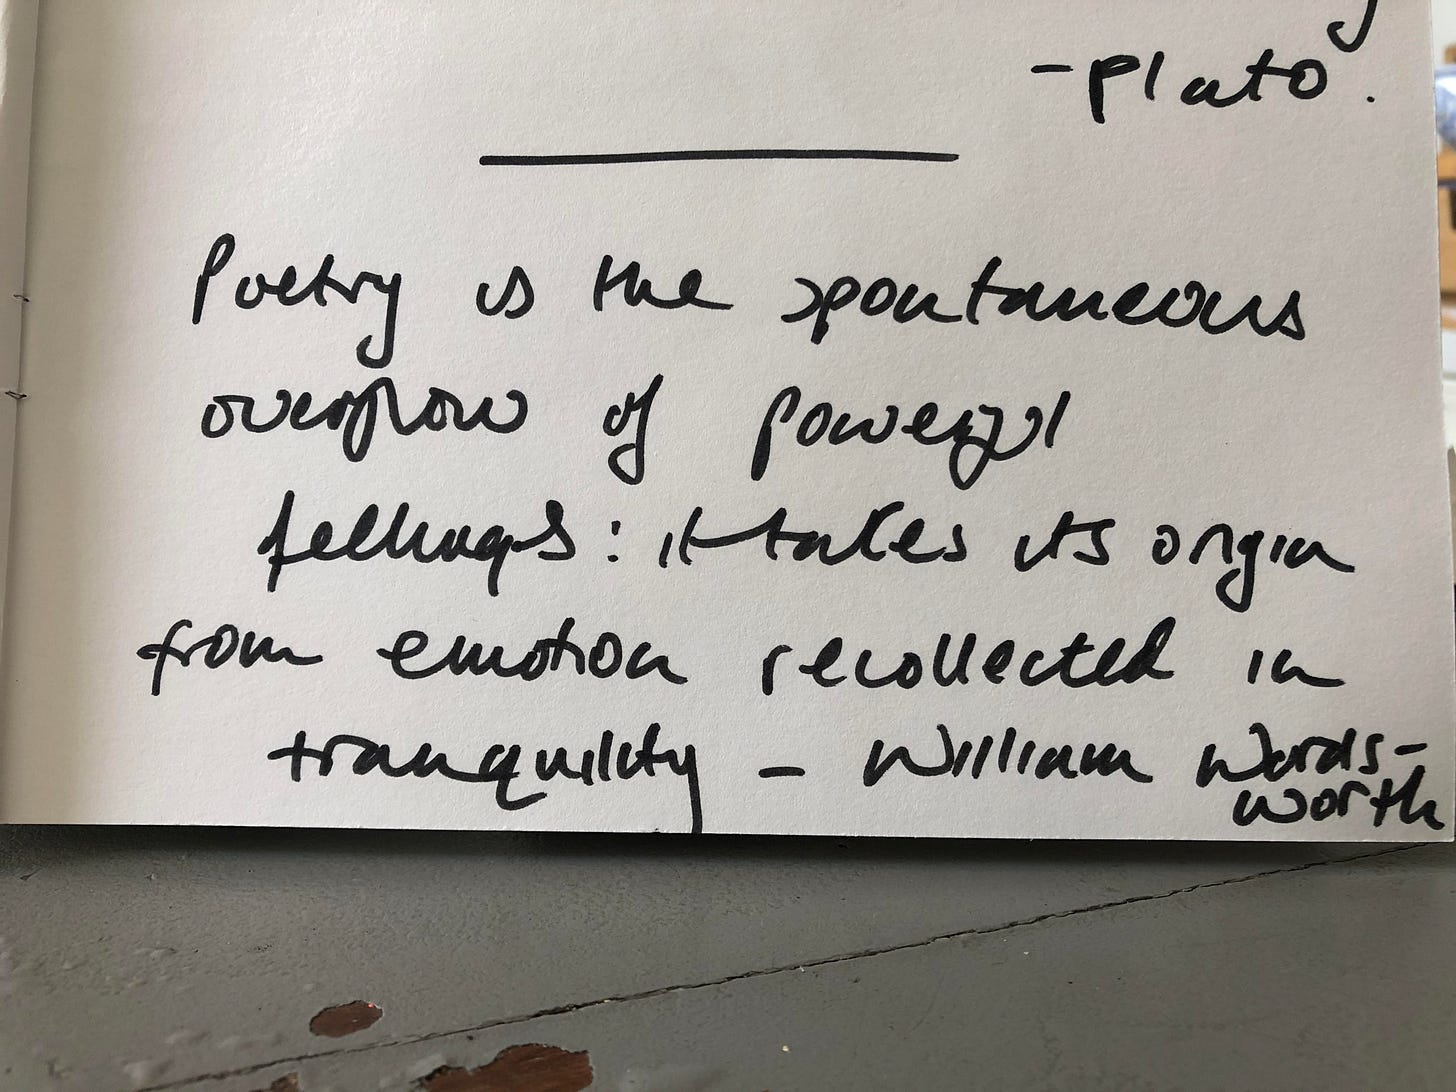 - Plato.
Poetry is the spontaneous
overflow of powerful
feelings: it takes its origin
from emotion recollected in
tranquility - William Words-
worth